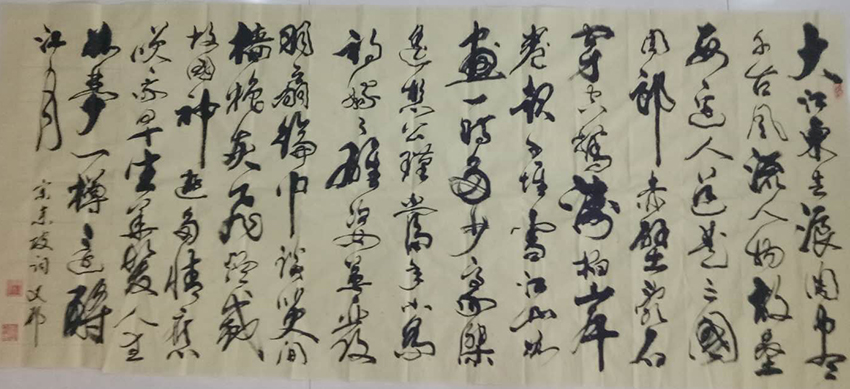 大江東去浪淘尽
千古風流人物故壘
西边人道是三國
周郎赤壁乱石
穿空驚濤拍岸
卷起千堆雪江山如
畫一時多少豪傑
遥想公瑾當年小喬
初嫁了雄姿英發
羽扇綸巾談笑间
樯櫓灰飛煙滅
故國神遊多情應
笑我早生華髮人生
如夢一樽還酹
江月
宋東坡詞